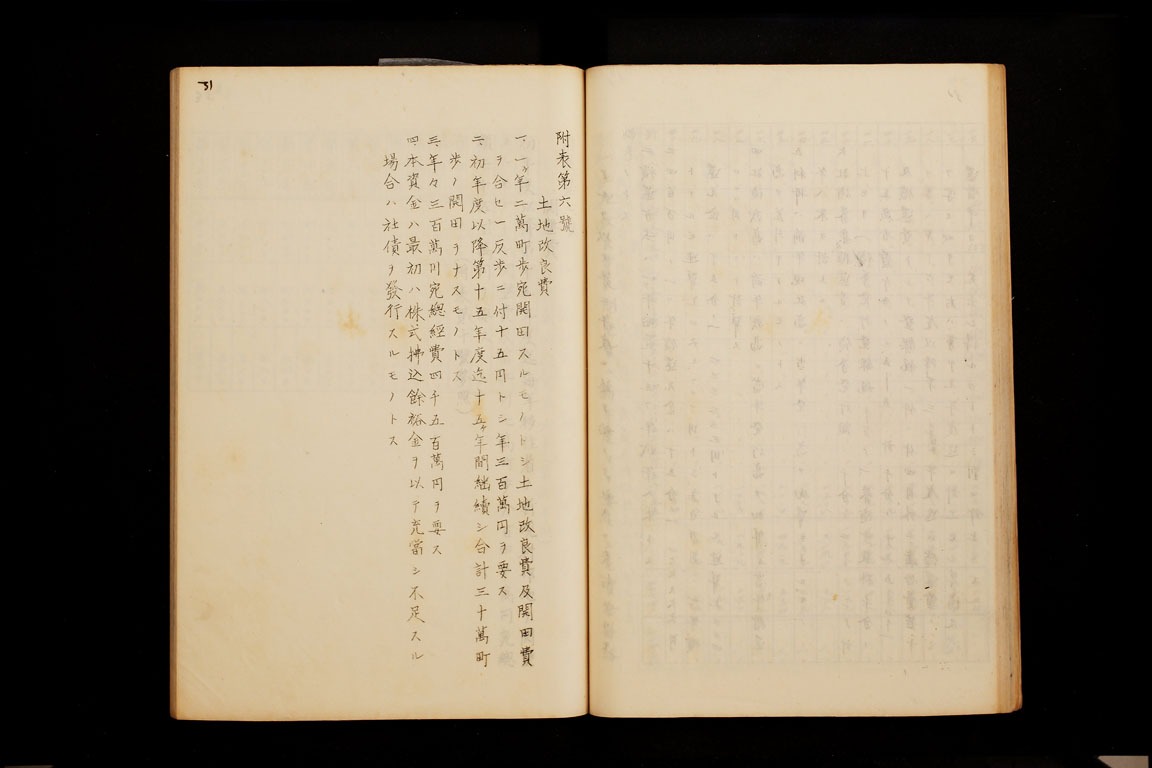 附表第六號
土地改良費
一、一ヶ年二萬町歩宛開田スルモノトシ土地改良費及開田費
ヲ合セ一反歩ニ付十五円トシ年三百萬円ヲ要ス
二、初年度以降第十五年度迄十五ヶ年間継續シ合計三十萬町
歩ノ開田ヲナスモノトス
三、年々三百萬円宛總經費四千五百萬円ヲ要ス
四、本資金ハ最初ハ株式拂込餘裕金ヲ以テ充當シ不足スル
場合ハ社債ヲ發行スルモノトス
51